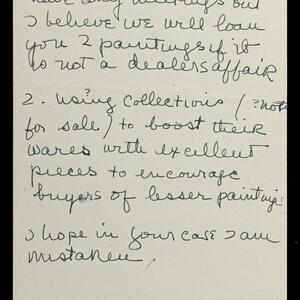 have any meetings but
I believe we will loan
you 2 paintings if it
is not a dealers affair
2. using collections (? not
for sale) to boost their
wares with excellent
pieces to encourage
buyers of lesser paintings
I hope in your case I am
mistaken.